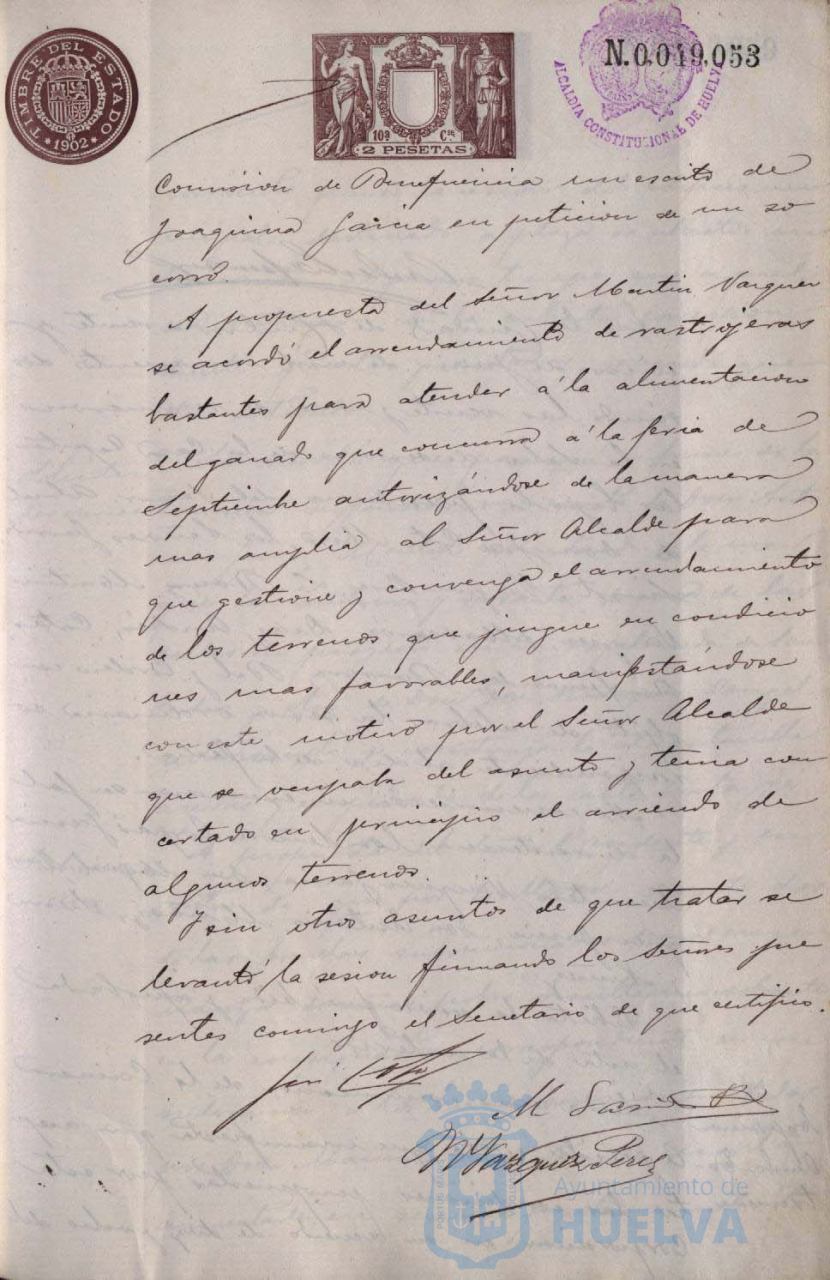 TIMBRE DEL ESTADO
*1902*
AÑO 1902
10ª Cse
2 PESETAS
N.0.049.053
ALCALDIA CONSTITUCIONAL DE HUELVA
Comision de Beneficencia un escrito de
Joaquina Garcia en peticion de un so
corro.
A propuesta del Señor Martin Vazquez
se acordó el arrendamiento de rastrojeras
bastantes para atender á la alimentacion
del ganado que concurra á la feria de
Septiembre autorizándose de la manera
mas amplia al Señor Alcalde para
que gestione y convenga el arrendamiento
de los terrenos que juzgue en condicio
nes mas favorables, manifestándose
con este motivo por el Señor Alcalde
que se ocupaba del asunto y tenia con
certado en principio el arriendo de
algunos terrenos.
Y sin otros asuntos de que tratar se
levantó la sesion firmando los Señores pre
sentes conmigo el Secretario de que certifico.
M
M Vazquez Perez
Ayuntamiento de
HUELVA